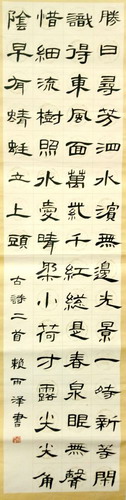 勝日尋芳泗水濱無邊光景一時新等閒
識得東風面萬紫千紅總是春泉眼無聲
惜細流樹照水愛晴柔小荷才露尖尖角
陰早有蜻蜓立上頭
古詩二首 賴 書